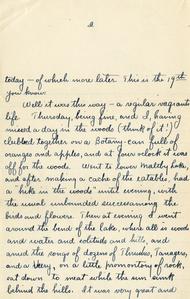 2
today - of which more later. This is the 19th
you know.
Well it was this way - a regular vagrant
life. Thursday, being fine, and I, having
missed a day in the woods (think of it!)
clubbed together on a Botany-can full of
oranges and apples, and at four o'clock it was
off for the woods. Went to lower Lake,
and after making a cache of the eatables, had
a "hike in the woods" until evening, with
the usual unbounded success among the
birds and flowers. Then at evening I went
around the bend of the lake, where all is woods
and water and solitude and hills, and
amid the songs of dozens of Thrushes, Tanagers,
and a Veery, on a little promontory of rock,
sat down to eat while the sun sank
behind the hills. It was very great and